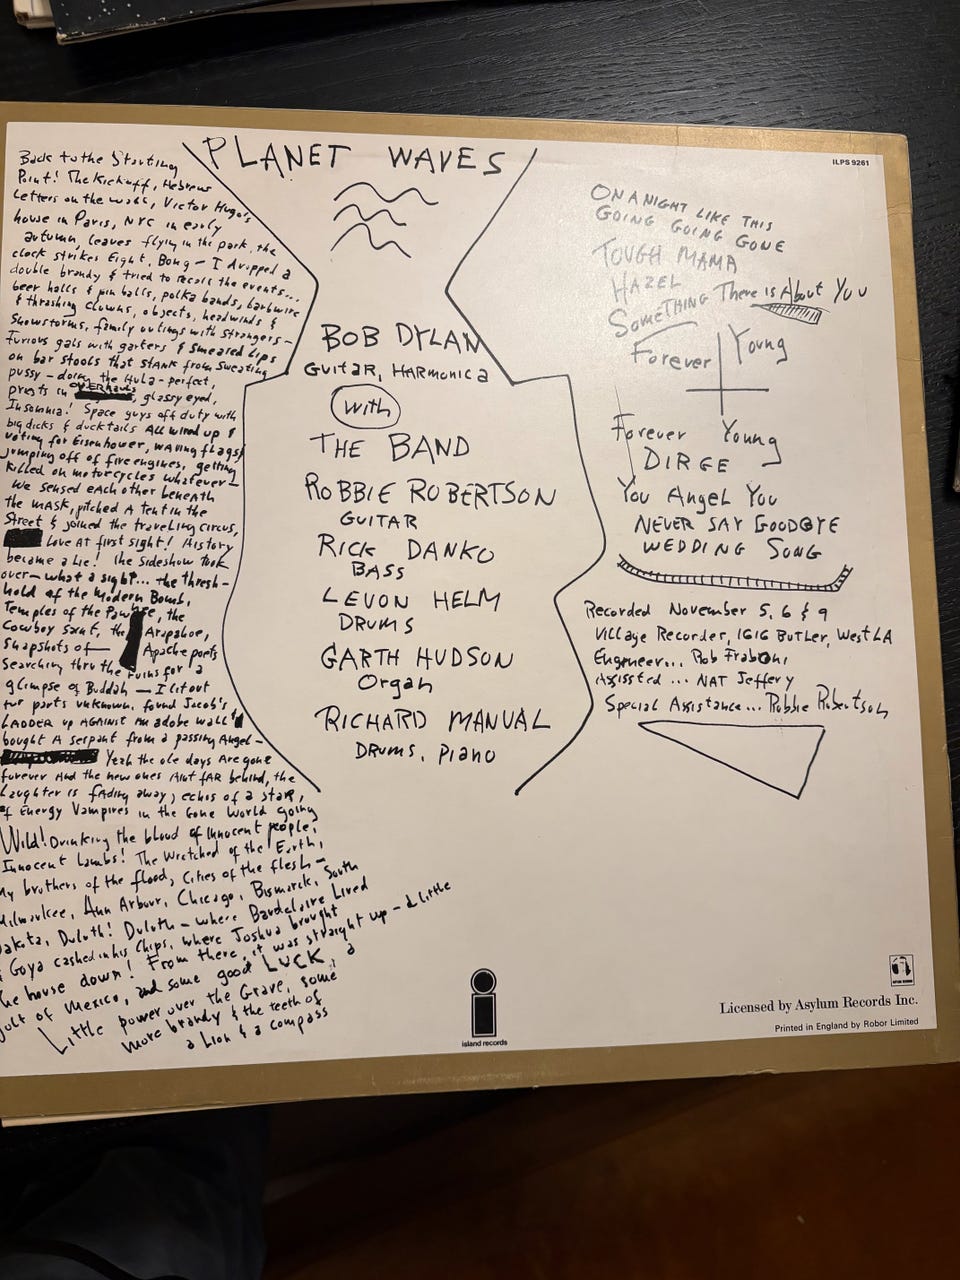 PLANET WAVES
Back to the Starting
Point! The Kickoff, Hebrew
Letters on the wall, Victor Hugo's
house in Paris, NYC in early
autumn, leaves flying in the park, the
clock strikes Eight. Bong — I dropped a
double brandy & tried to recall the events...
beer halls & pin balls, polka bands, barbwire
& thrashing clowns, objects, headwinds &
Snowstorms, family outings with strangers —
Furious gals with garters & smeared Lips
on bar stools that stank from sweating
pussy — doing the Hula — perfect,
priests in OVERHAULS, glassy eyed,
Insomnia! Space guys off duty with
big dicks & duck tails All wired up &
voting for Eisenhower, waving flags &
jumping off of fire engines, getting
killed on motorcycles whatever —
We sensed each other beneath
the mask, pitched A tent in the
Street & joined the traveling circus,
Love At first sight! History
became a Lie! the sideshow took
over — what a sight... the thresh-
hold of the Modern Bomb,
Temples of the Pawnee, the
Cowboy saint, the Arapahoe,
snapshots of — Apache poets
Searching thru the ruins for a
glimpse of Buddah — I lit out
for parts unknown, found Jacob's
LADDER up AGAINST An adobe wall &
bought A serpant from a passing Angel —
Yeah the ole days Are gone
forever And the new ones Aint fAR behind, the
Laughter is fAding away, echos of a star,
of Energy Vampires in the Gone World going
Wild! Drinking the blood of innocent people,
Innocent Lambs! The Wretched of the Earth,
My brothers of the flood, Cities of the flesh —
Milwaukee, Ann Arbour, Chicago, Bismarck, South
Dakota, Duluth! Duluth — where Baudelaire Lived
& Goya cashed in his Chips, where Joshua brought
the house down! From there, it was straight up — a little
Jolt of Mexico, and some good LUCK, a
Little power over the Grave, some
more brandy & the teeth of
a Lion & a compass
BOB DYLAN
GUITAR, HARMONICA
With
THE BAND
ROBBIE ROBERTSON
GUITAR
RICK DANKO
BASS
LEVON HELM
DRUMS
GARTH HUDSON
Organ
RICHARD MANUAL
DRUMS, PIANO
ILPS 9261
ON A NIGHT LIKE THIS
GOING GOING GONE
TOUGH MAMA
HAZEL
SOMETHING There is About You
Forever Young
Forever Young
DIRGE
You Angel You
NEVER SAY GOODBYE
WEDDING SONG
Recorded November 5, 6 & 9
Village Recorder, 1616 Butler, West LA
Engineer... Rob Fraboni
Assissted ... NAT Jeffery
Special Assistance... Robbie Robertson
island records
Licensed by Asylum Records Inc.
Printed in England by Robor Limited